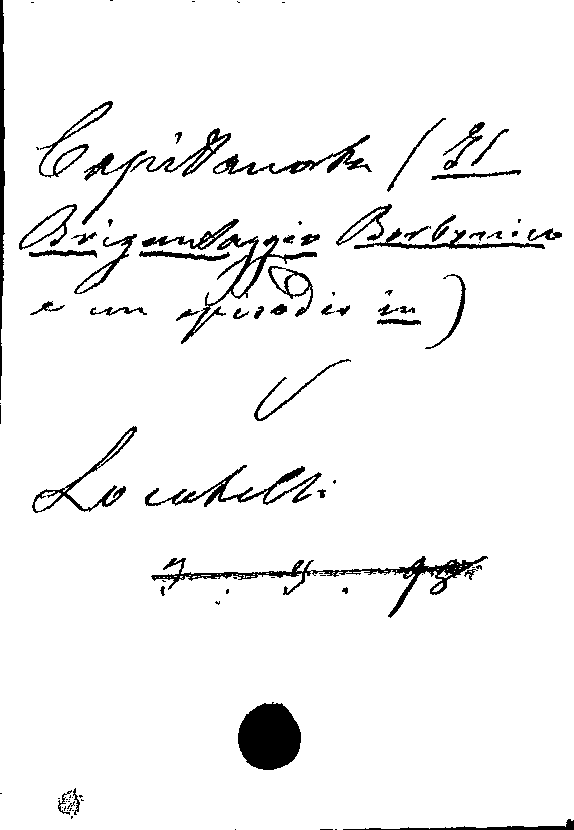 Capitanata (Il
Brigantaggio Borbonico
e un episodio in)
V
Locatelli